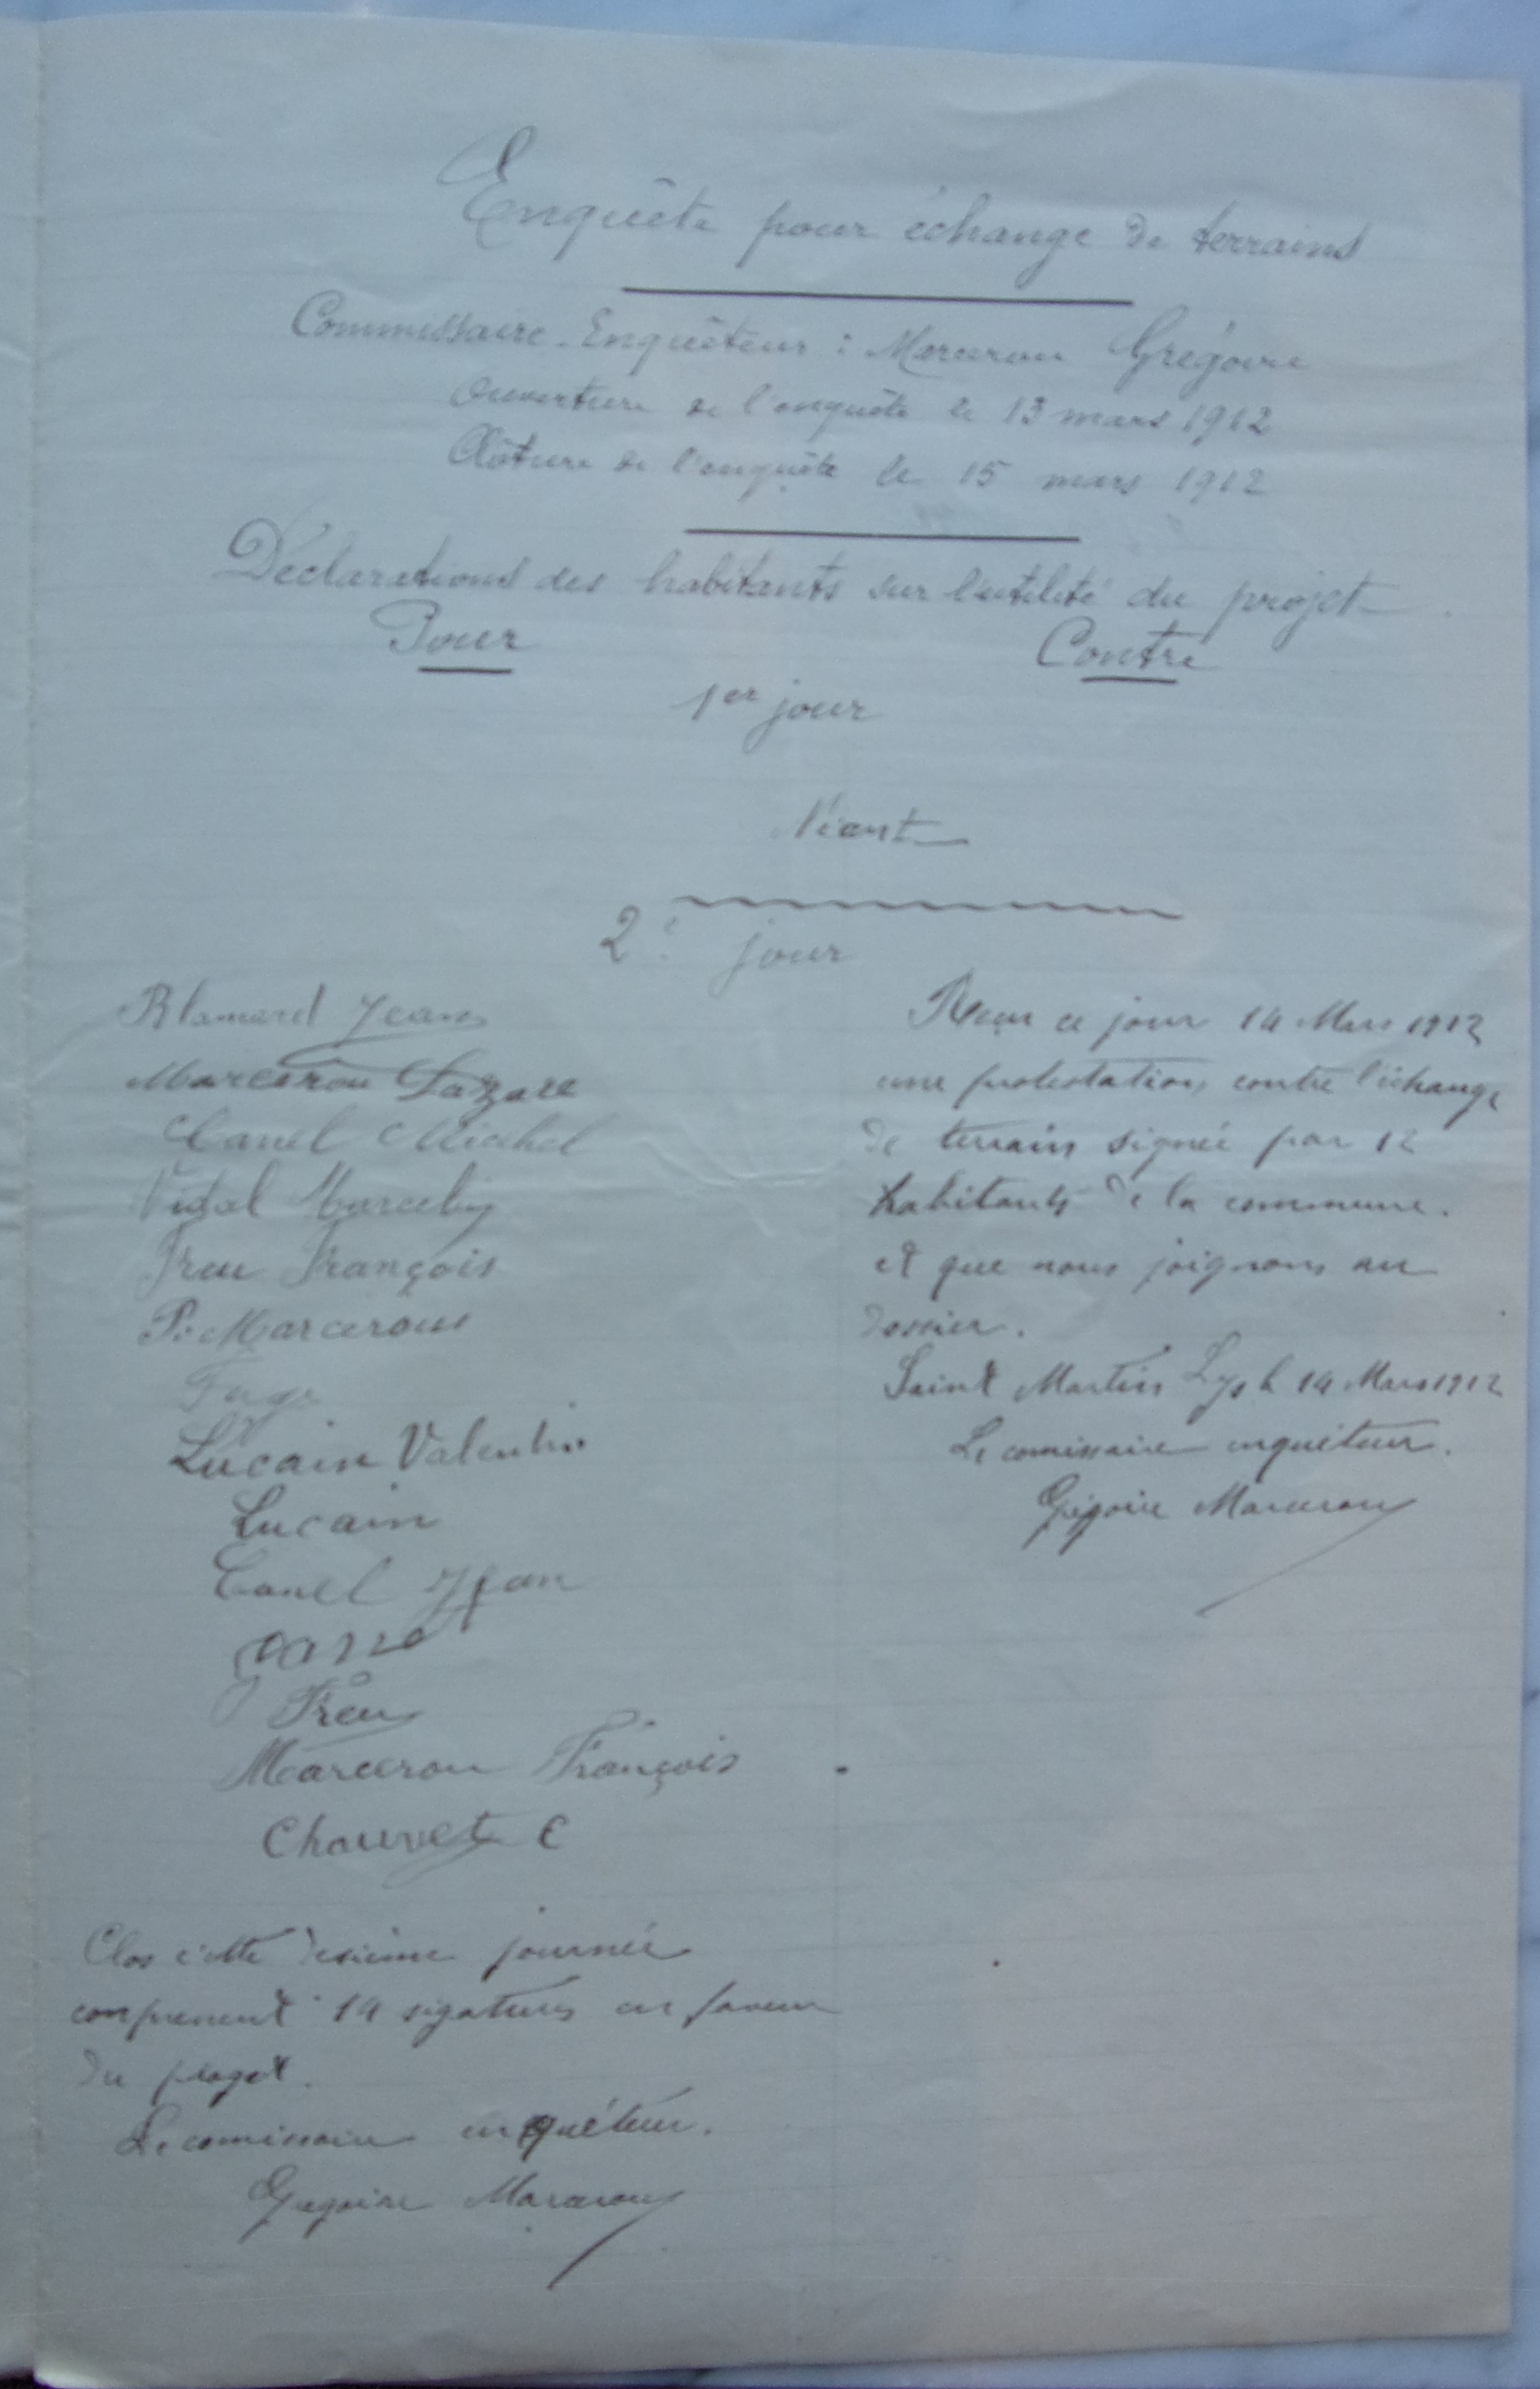 Enquête pour échange de terrains
Commissaire-Enquêteur : Marcerou Grégoire
Ouverture de l'enquête le 13 mars 1912
Clôture de l'enquête le 15 mars 1912
Déclarations des habitants sur l'utilité du projet
Pour
Contre
1er jour
Néant
2e jour
Blamard Jean
Marcerou Lazare
Canel Michel
Vidal Marcelin
Freu François
P. Marcerou
Fuge
Lucain Valentin
Lucain
Canel Jean
Freu
Marcerou François
Chauvet C
Clos cette dexième journée
comprenent 14 sigatures en faveur
du proget.
Le comissaire enquêteur.
Gregoire Marcerou
Reçu ce jour 14 Mars 1912
une protestation contre l'échange
de terrain signée par 12
habitants de la commune.
et que nous joignons au
dossier.
Saint Martin Lys le 14 Mars 1912
Le comissaire enquêteur.
Grégoire Marcerou